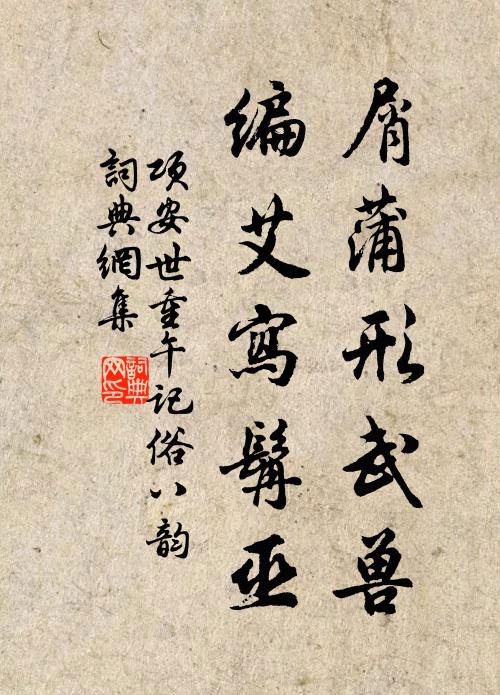 屑蒲形武兽
编艾寫髯巫
项安世重午记俗八韵
詞典網集
詞典网印